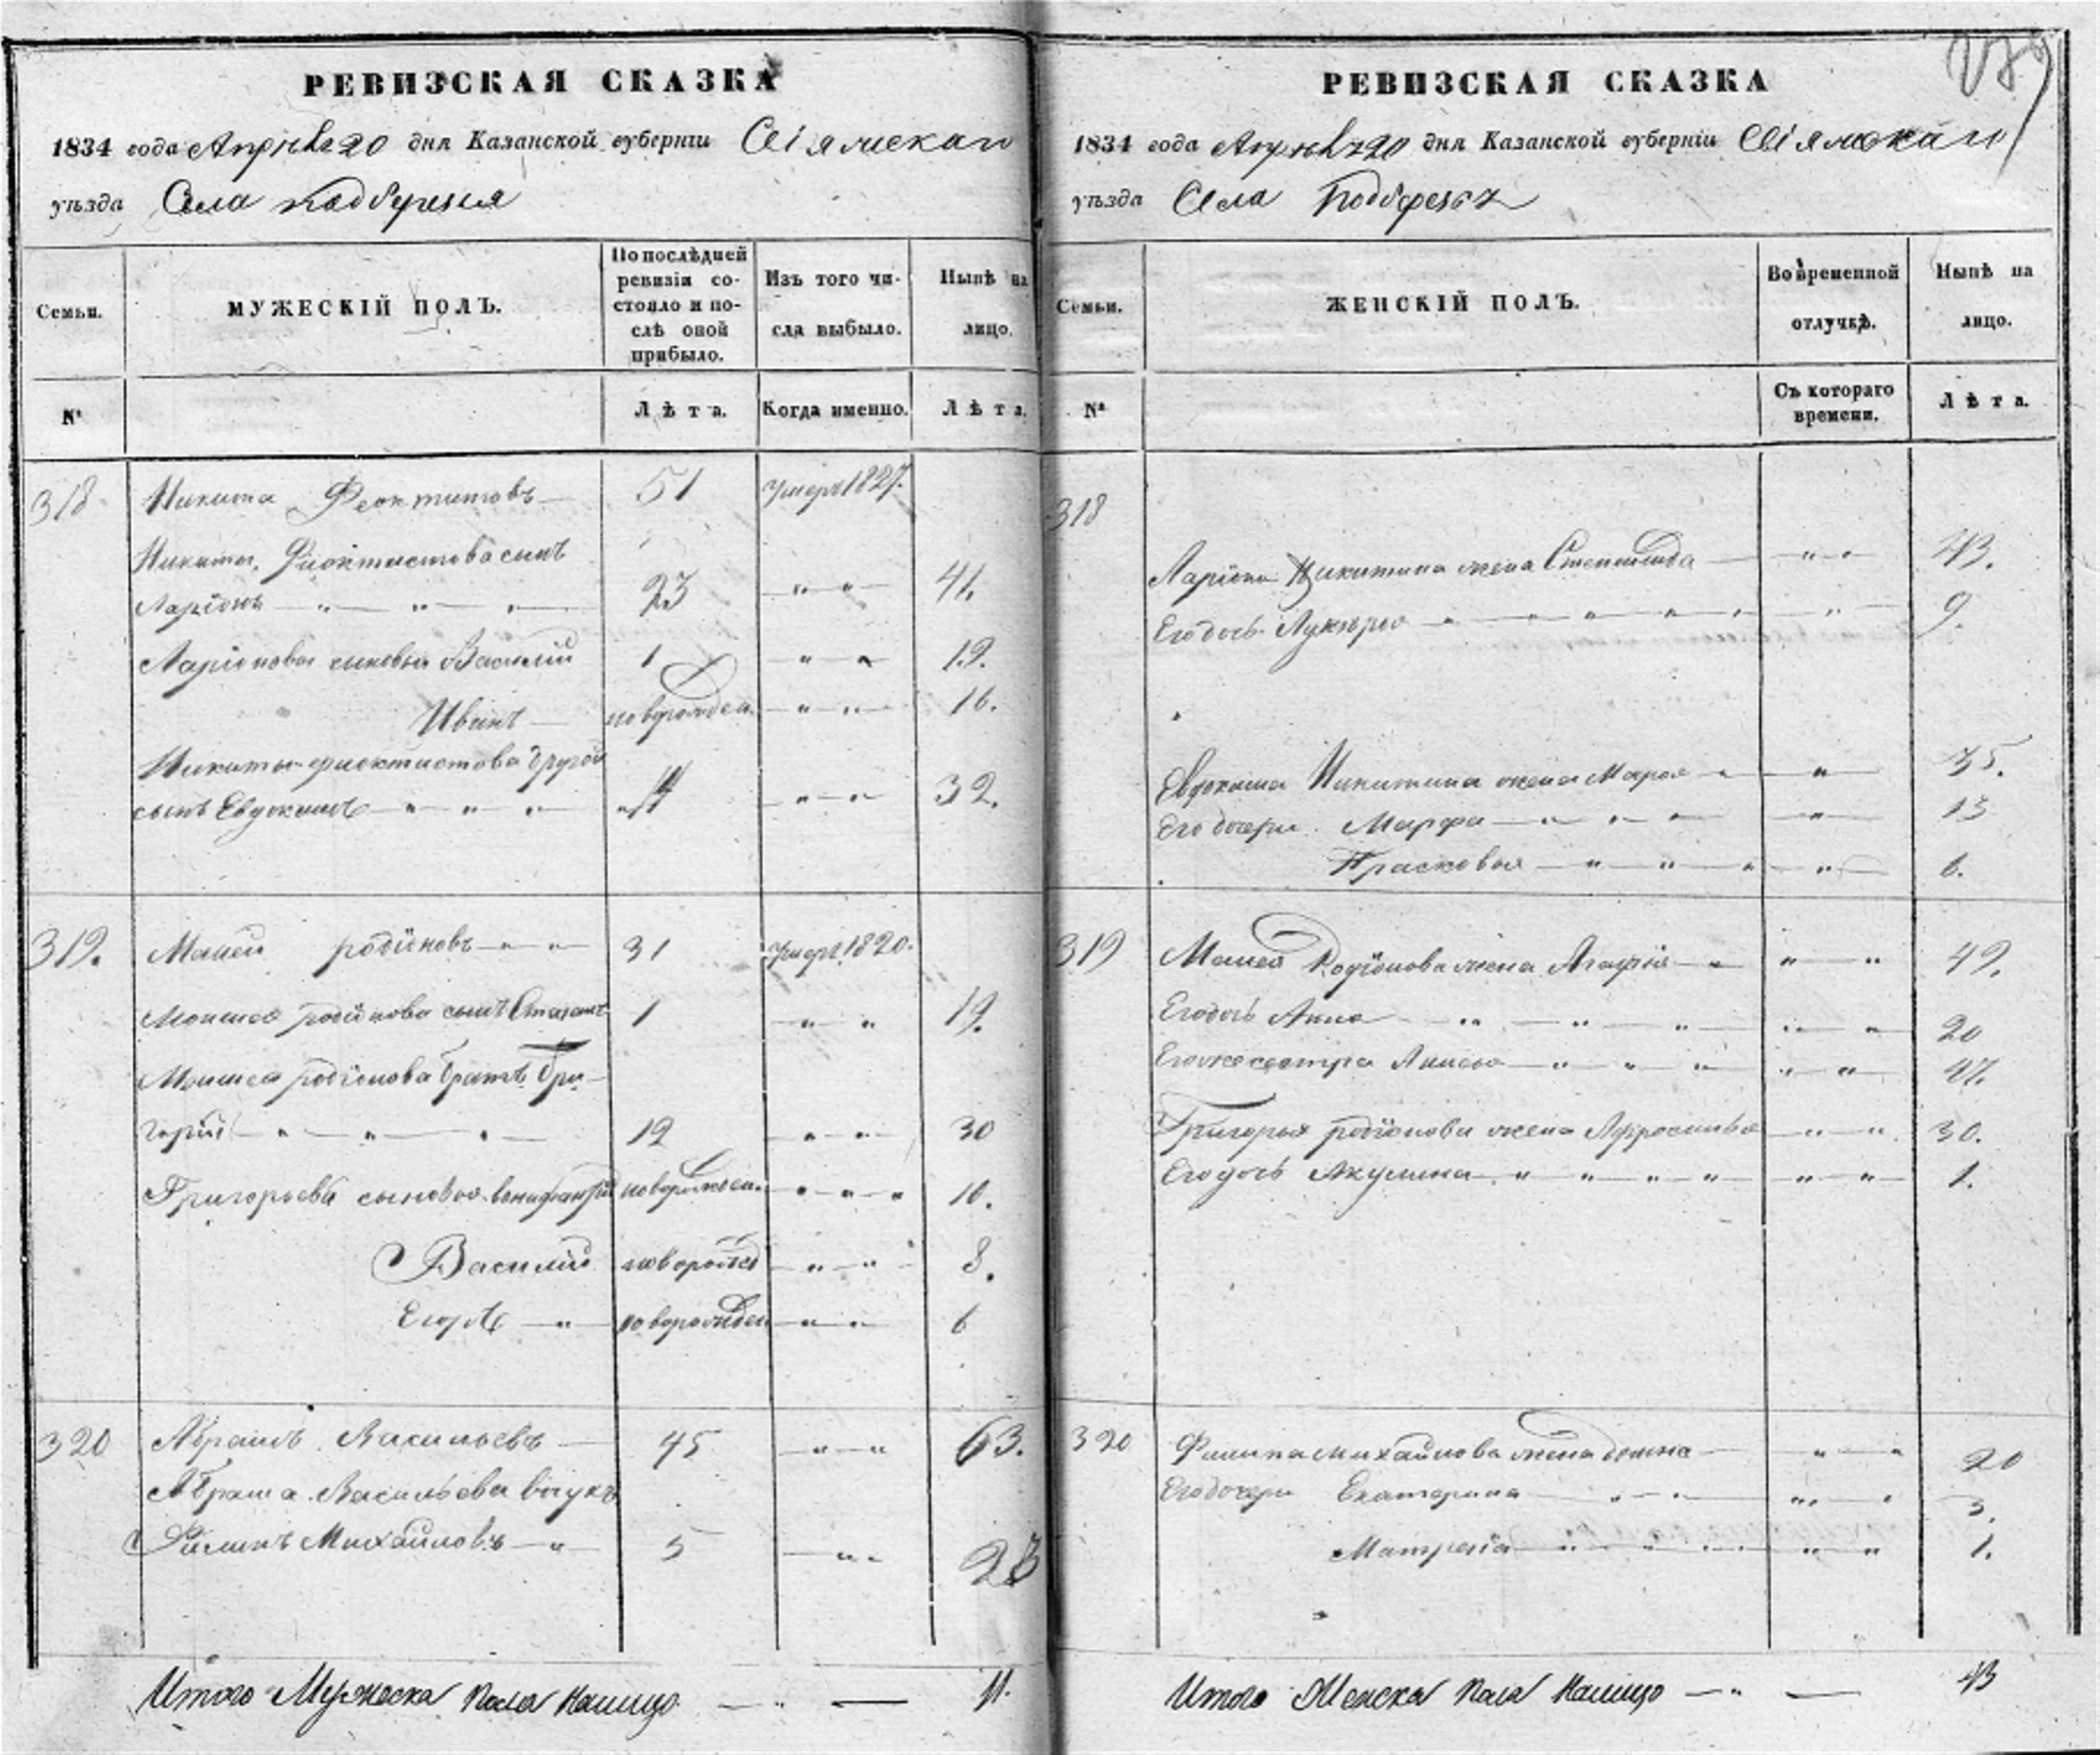 РЕВИЗСКАЯ СКАЗКА
1834 года Апреля 20 дня Казанской губерніи Свіяжскаго
уѣзда Села
Семьи.
МУЖЕСКІЙ ПОЛЪ.
По послѣдней ревизіи состояло и послѣ оной прибыло.
Изъ того числа выбыло.
Нынѣ на лицо.
№
Лѣта.
Когда именно.
Лѣта.
318 Никита Феоктитовъ 51 умеръ 1827.
Никиты Фиоктистова сынъ
Ларіонъ 23 41.
Ларіоновы сыновья Василій 1 19.
Иванъ новорожден. 16.
Никиты фиоктистова другой
сынъ Евдокимъ 14 32.
319. родіоновъ 31 умеръ 1820.
родіонова сынъ 1 19.
родіонова братъ Гри-
горій 12 30
Григорьевы сыновья новорожден. 10.
Василій новорожд 8.
Егоръ новорожден 6
320 Абрамъ Васильевъ 45 63.
Абрама Васильева внукъ
Филипъ Михайловъ 5 23
Итого Мужеска пола налицо 11.
РЕВИЗСКАЯ СКАЗКА
1834 года Апреля 20 дня Казанской губерніи Свіяжскаго
уѣзда Села
Семьи.
ЖЕНСКІЙ ПОЛЪ.
Во временной отлучкѣ.
Нынѣ на лицо.
№
Съ котораго времени.
Лѣта.
318
Ларіона Никитина жена 43.
Его дочь Лукерья 9.
Евдокима Никитина жена Марья 35.
Его дочери Марфа 13
Прасковья 6.
319 Родіонова жена Агафія 49.
Его дочь Анна 20
Его же сестра 47.
Григорья родіонова жена Афросинья 30.
Его дочь Акулина 1.
320 Филипа Михайлова жена домна 20
Его дочери Екатерина 3.
Матрена 1.
Итого Женска пола налицо 13